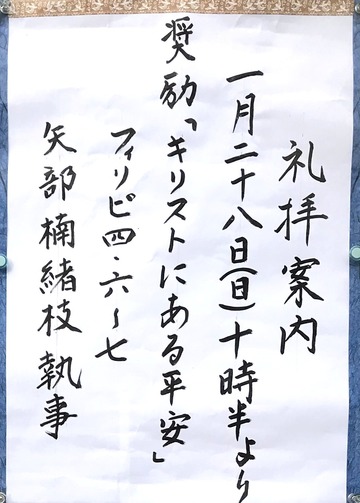 礼拝案内
一月二十八日(日)十時半より
奨励「キリストにある平安」
フィリピ四・六〜七
矢部楠緒枝執事